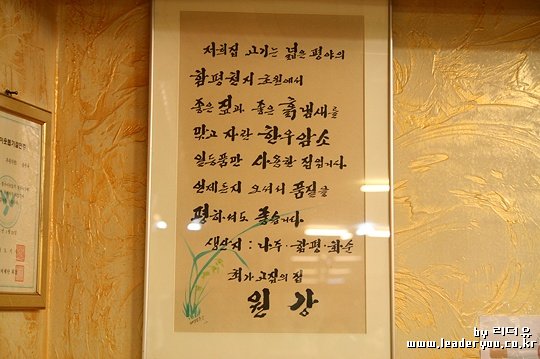 저희집 고기는 넓은 평야의
함평천지 초원에서
좋은 짚과 좋은 흙냄새를
맞고 자란 한우암소
일등품만 사용한 집입니다
언제든지 오셔서 품질을
평하셔도 좋습니다
생산지 : 나주·함평·화순
최가고집의 집
원강
by 리더유
www.leaderyou.co.kr